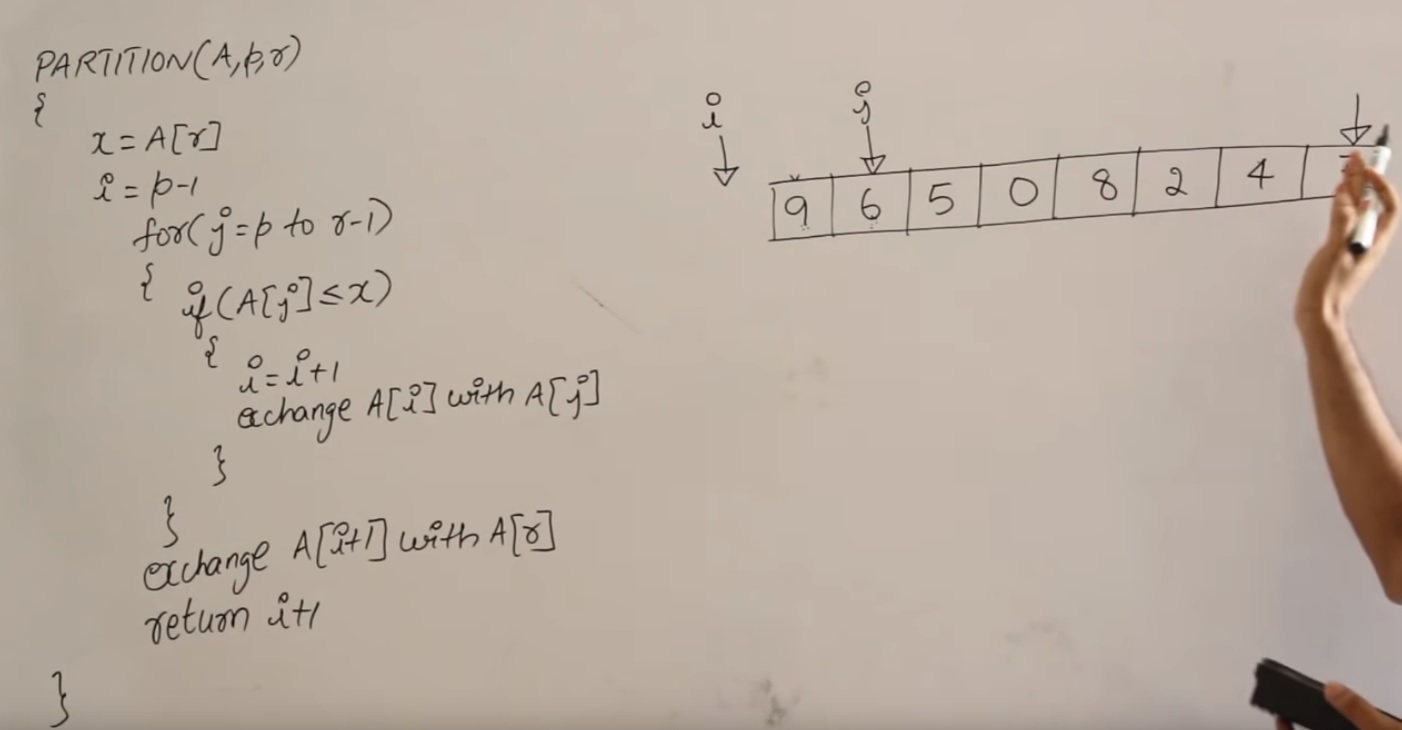 PARTITION(A,p,r)
{
x=A[r]
i=p-1
for(j=p to r-1)
{ if(A[j]≤x)
{ i=i+1
exchange A[i] with A[j]
}
}
exchange A[i+1] with A[r]
return i+1
}
i j
9 6 5 0 8 2 4